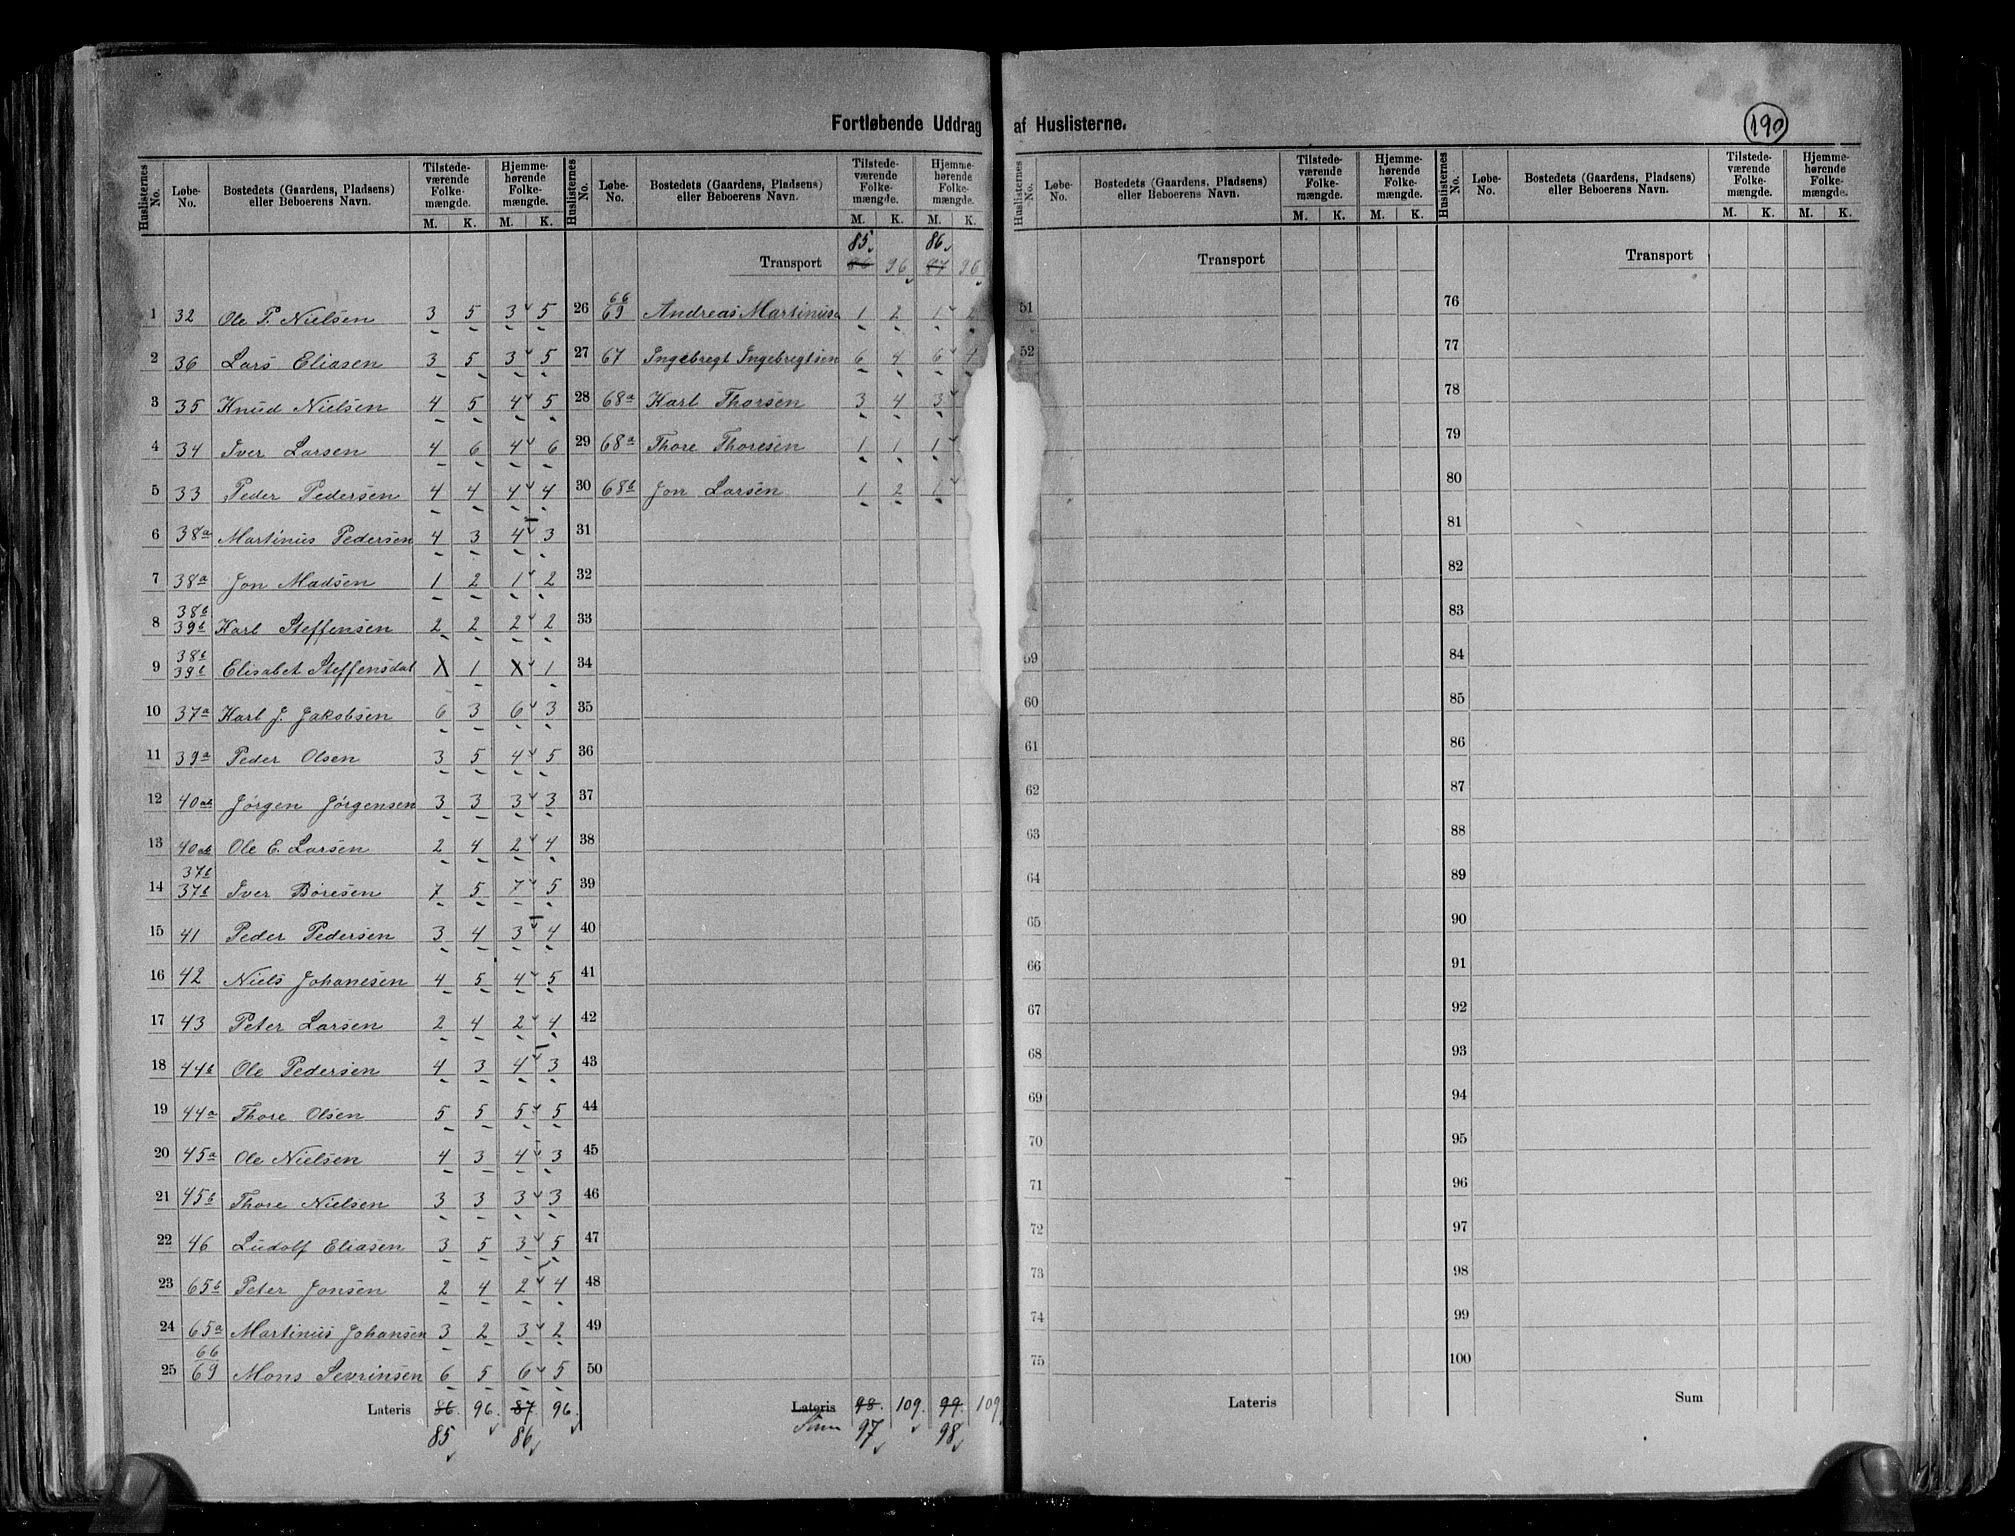 Fortløbende Uddrag af Huslisterne.
190
Huslisternes No. Løbe-No. Bostedets (Gaardens, Pladsens) eller Beboerens Navn. Tilstedeværende Folkemængde. M. K. Hjemmehørende Folkemængde. M. K.
1 32 Ole P. Nielsen 3 5 3 5
2 36 Lars Eliasen 3 5 3 5
3 35 Knud Nielsen 4 5 4 5
4 34 Iver Larsen 4 6 4 6
5 33 Peder Pedersen 4 4 4 4
6 38a Martinus Pedersen 4 3 4 3
7 38a Jon Madsen 1 2 1 2
8 38b 39b Karl Steffensen 2 2 2 2
9 38b 39b Elisabet Steffensdat X 1 X 1
10 37a Karl J. Jakobsen 6 3 6 3
11 39a Peder Olsen 3 5 4 5
12 40ab Jørgen Jørgensen 3 3 3 3
13 40ab Ole E. Larsen 2 4 2 4
14 37b 37b Iver Boresen 7 5 7 5
15 41 Peder Pedersen 3 4 3 4
16 42 Niels Johanesen 4 5 4 5
17 43 Peter Larsen 2 4 2 4
18 44b Ole Pedersen 4 3 4 3
19 44a Thore Olsen 5 5 5 5
20 45a Ole Nielsen 4 3 4 3
21 45b Thore Nielsen 3 3 3 3
22 46 Ludolf Eliasen 3 5 3 5
23 65b Peter Jonsen 2 4 2 4
24 65a Martinus Johansen 3 2 3 2
25 66 69 Mons Sevrinsen 6 5 6 5
Lateris 86. 96. 87 96.
85 86
Huslisternes No. Løbe-No. Bostedets (Gaardens, Pladsens) eller Beboerens Navn. Tilstedeværende Folkemængde. M. K. Hjemmehørende Folkemængde. M. K.
85 86
Transport 86 96 87 96
26 66 69 Andreas Martinus 1 2 1 2
27 67 Ingebregt Ingebrigtsen 6 4 6 4
28 68a Karl Thorsen 3 4 3
29 68a Thore Thoresen 1 1 1
30 68b Jon Larsen 1 2 1
31
32
33
34
35
36
37
38
39
40
41
42
43
44
45
46
47
48
49
50
Lateris 98. 109. 99. 109
Sum 97 98
Huslisternes No. Løbe-No. Bostedets (Gaardens, Pladsens) eller Beboerens Navn. Tilstedeværende Folkemængde. M. K. Hjemmehørende Folkemængde. M. K.
Transport
51
52
59
60
61
62
63
64
65
66
67
68
69
70
71
72
73
74
75
Lateris
Huslisternes No. Løbe-No. Bostedets (Gaardens, Pladsens) eller Beboerens Navn. Tilstedeværende Folkemængde. M. K. Hjemmehørende Folkemængde. M. K.
Transport
76
77
78
79
80
81
82
83
84
85
86
87
88
89
90
91
92
93
94
95
96
97
98
99
100
Sum